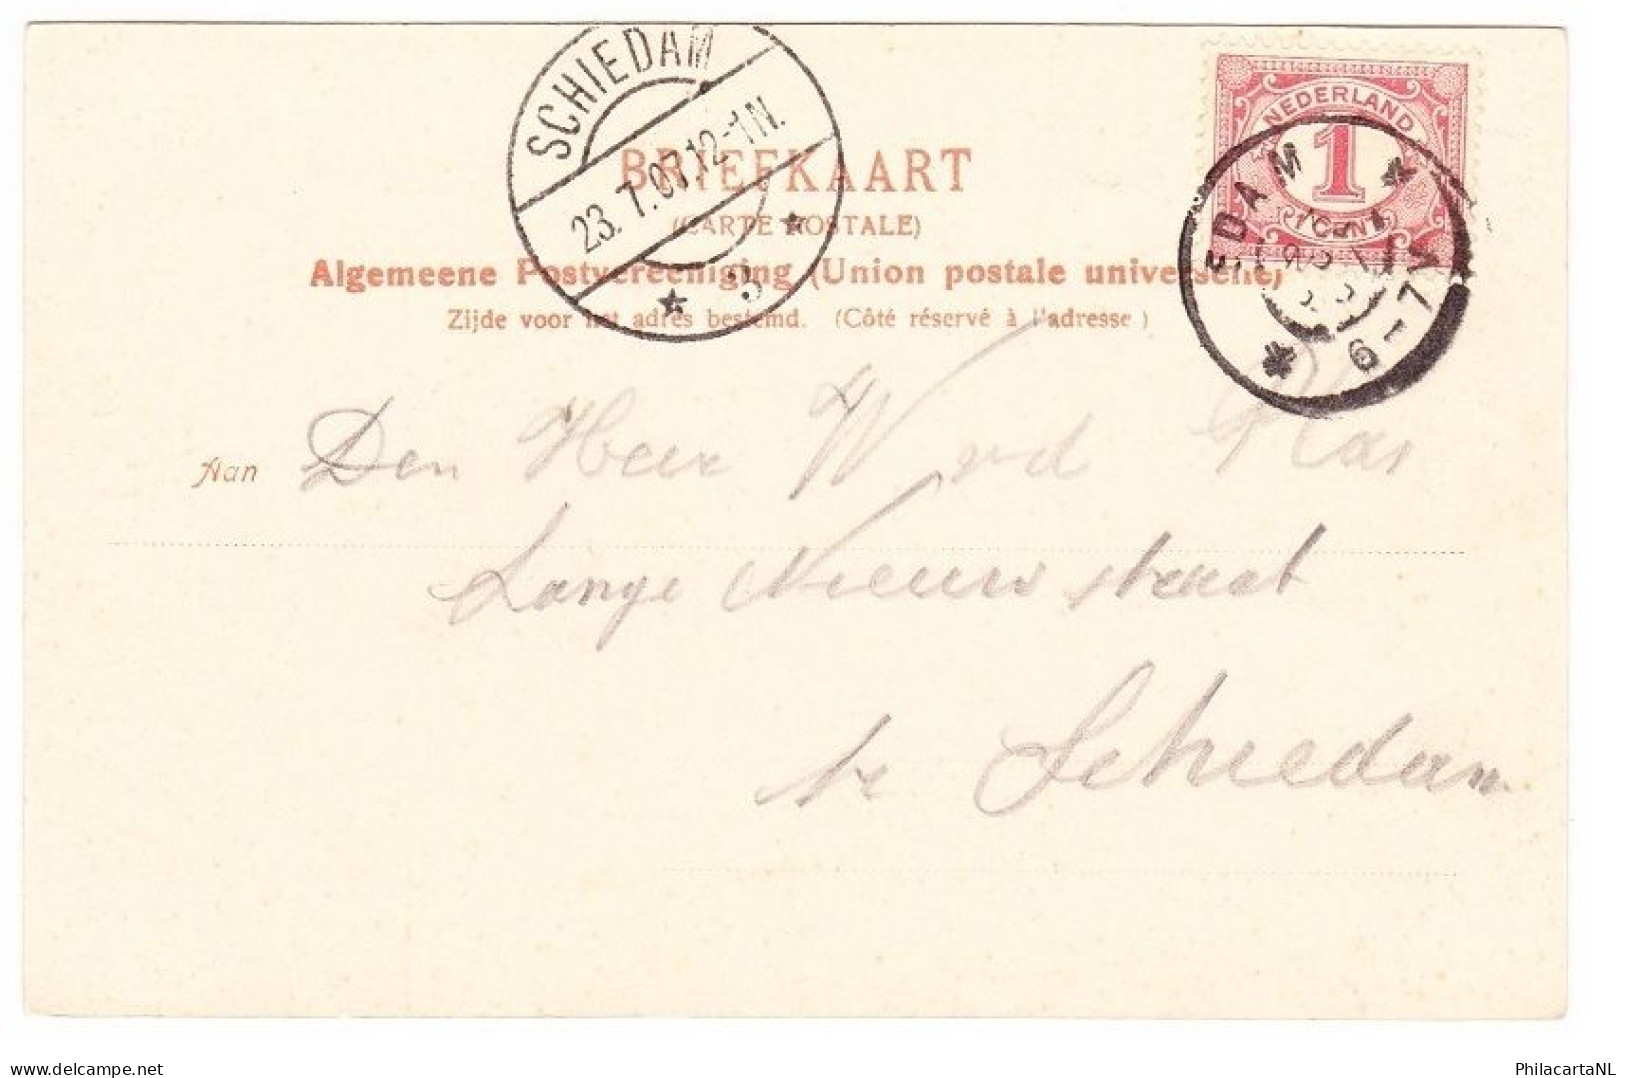 SCHIEDAM
23.7.07.12-1N.
3
NEDERLAND
1
CENT
EDAM
6-7V
BRIEFKAART
(CARTE POSTALE)
Algemeene Postvereeniging (Union postale universelle)
Zijde voor het adres bestemd. (Côté réservé à l'adresse)
Aan Den Heer W vd
Lange Nieuwstraat
te Schiedam
www.delcampe.net
PhilacartaNL